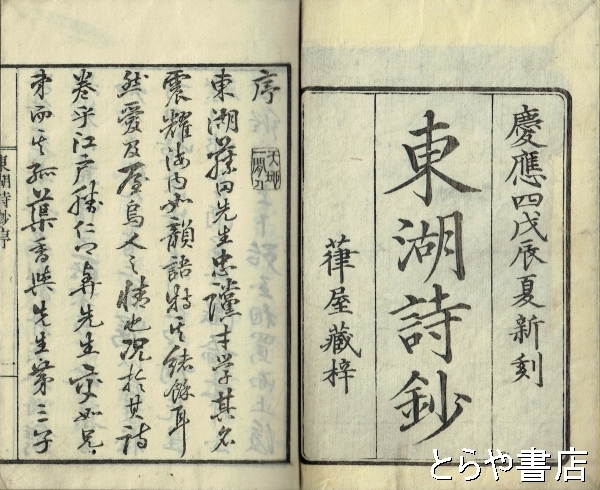 慶應四戊辰夏新刻
東湖詩鈔
葎屋藏梓
序
東湖藤田先生忠讜才学其名
震耀海内如韻語特其緒餘耳
然愛及屋烏人之情也況於其詩
巻乎江戸勝仁先生交如兄
弟而其孤香與先生第三子
東湖詩鈔序
とらや書店